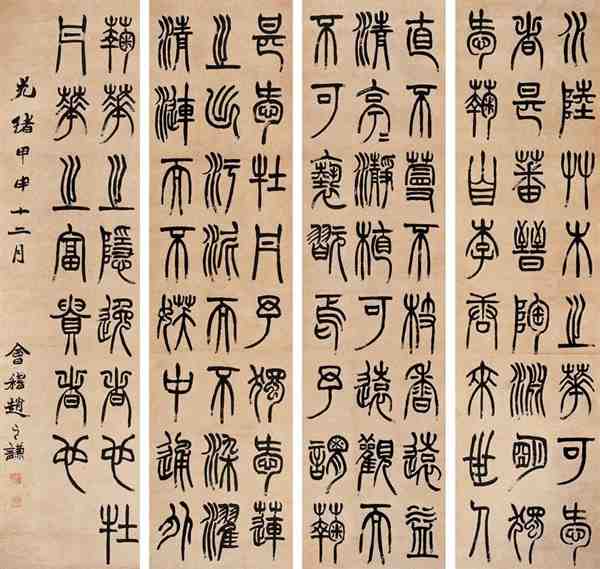 水陸艸木之華可愛
者甚蕃晉陶淵明獨
愛菊自李唐來世人
直不蔓不枝香遠益
清亭〻瀞植可遠觀而
不可褻翫焉予謂菊
甚愛牡丹予獨愛蓮
之出汙泥而不染濯
清漣而不妖中通外
菊華之隱逸者也牡
丹華之富貴者也
光緒甲申十二月
會稽趙之謙